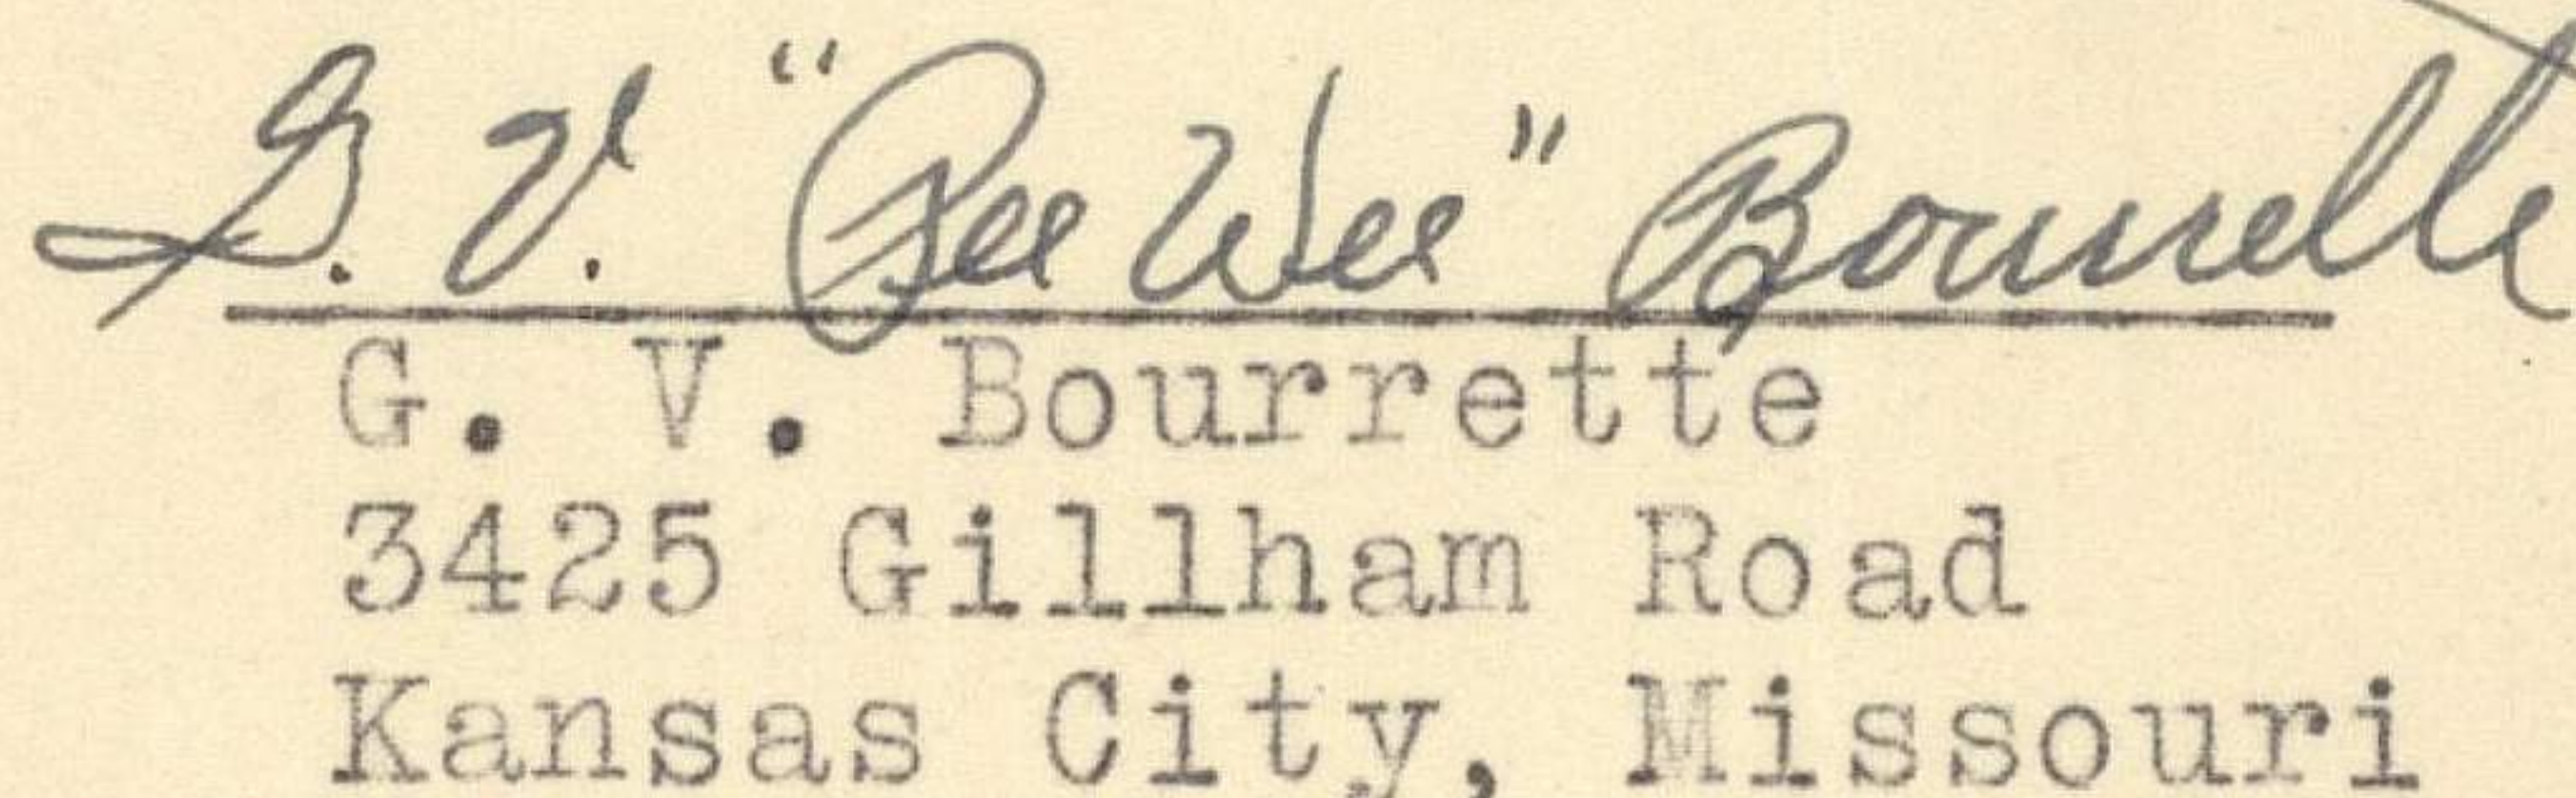 G. V. "Pee Wee" Bourrette
G. V. Bourrette
3425 Gillham Road
Kansas City, Missouri